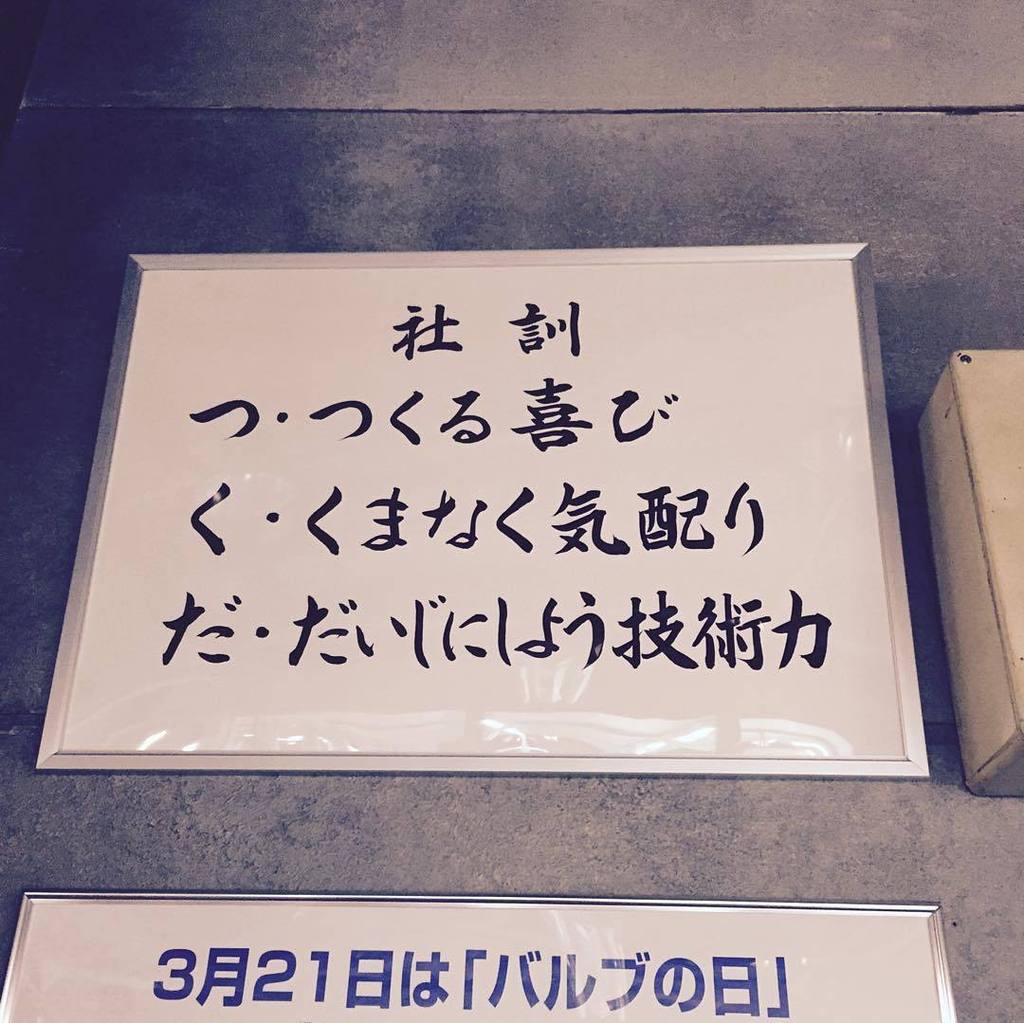 社訓
つ・つくる喜び
く・くまなく気配り
だ・だいじにしよう技術力
3月21日は「バルブの日」